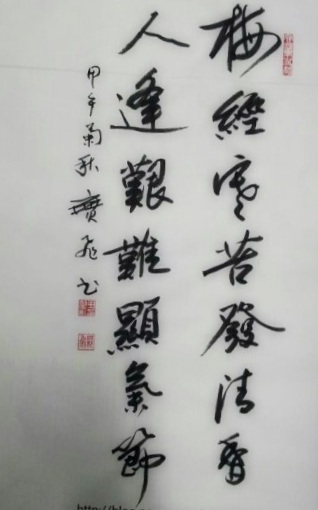 梅經寒苦發清香
人逢艱難顯氣節
甲午菊秋寶飛书
http://blog